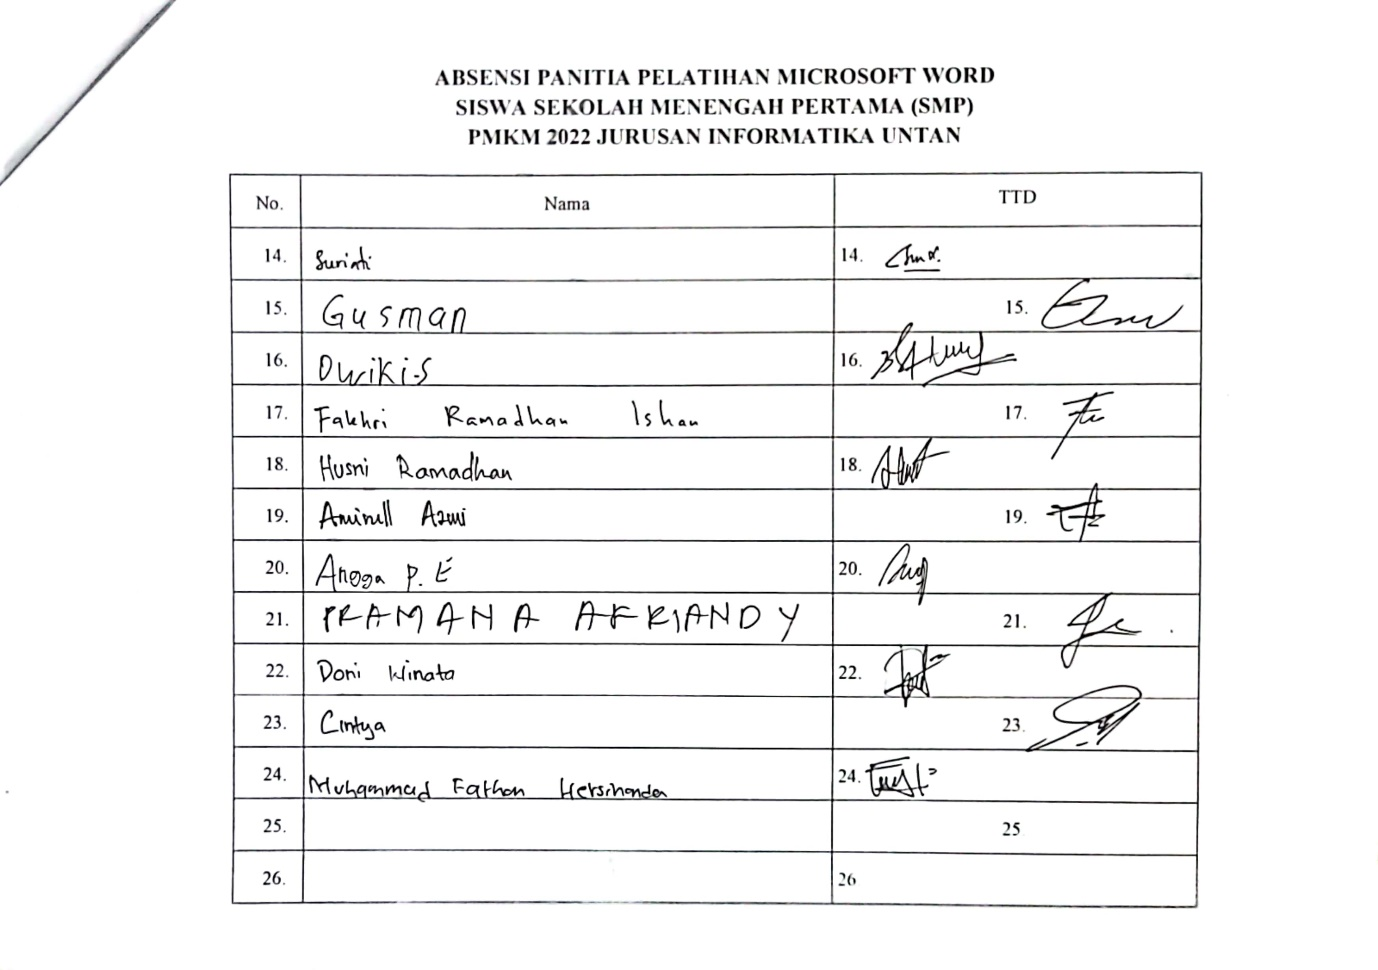 ABSENSI PANITIA PELATIHAN MICROSOFT WORD
SISWA SEKOLAH MENENGAH PERTAMA (SMP)
PMKM 2022 JURUSAN INFORMATIKA UNTAN
No. Nama TTD
14. Surinti 14.
15. Gusman 15.
16. Dwiki.S 16.
17. Fakhri Ramadhan Ishan 17.
18. Husni Ramadhan 18.
19. Aminull Azmi 19.
20. Angga P. E 20.
21. PRAMANA AFRIANDY 21.
22. Doni Winata 22.
23. Cintya 23.
24. Muhammad Fathan 24.
25. 25
26. 26